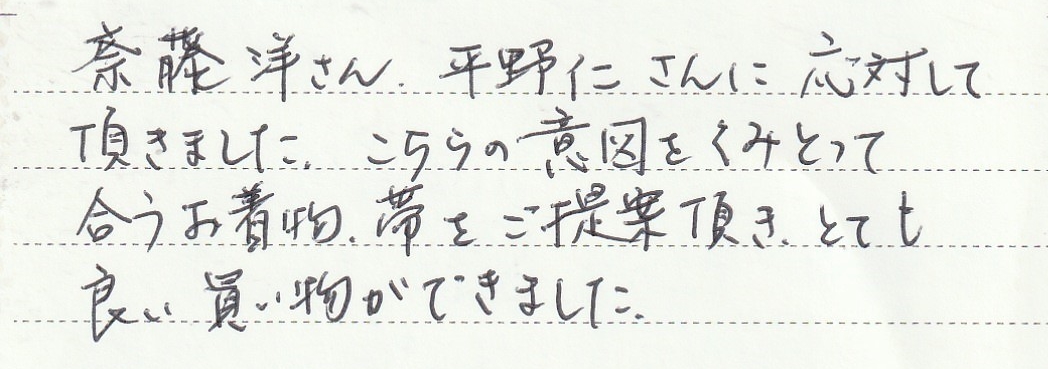 斎藤洋さん、平野仁さんに応対して
頂きました。こちらの意図をくみとって
合うお着物、帯をご提案頂き、とても
良い買い物ができました。